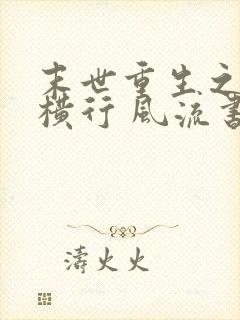 末世重生之
横行风流书
濤火火